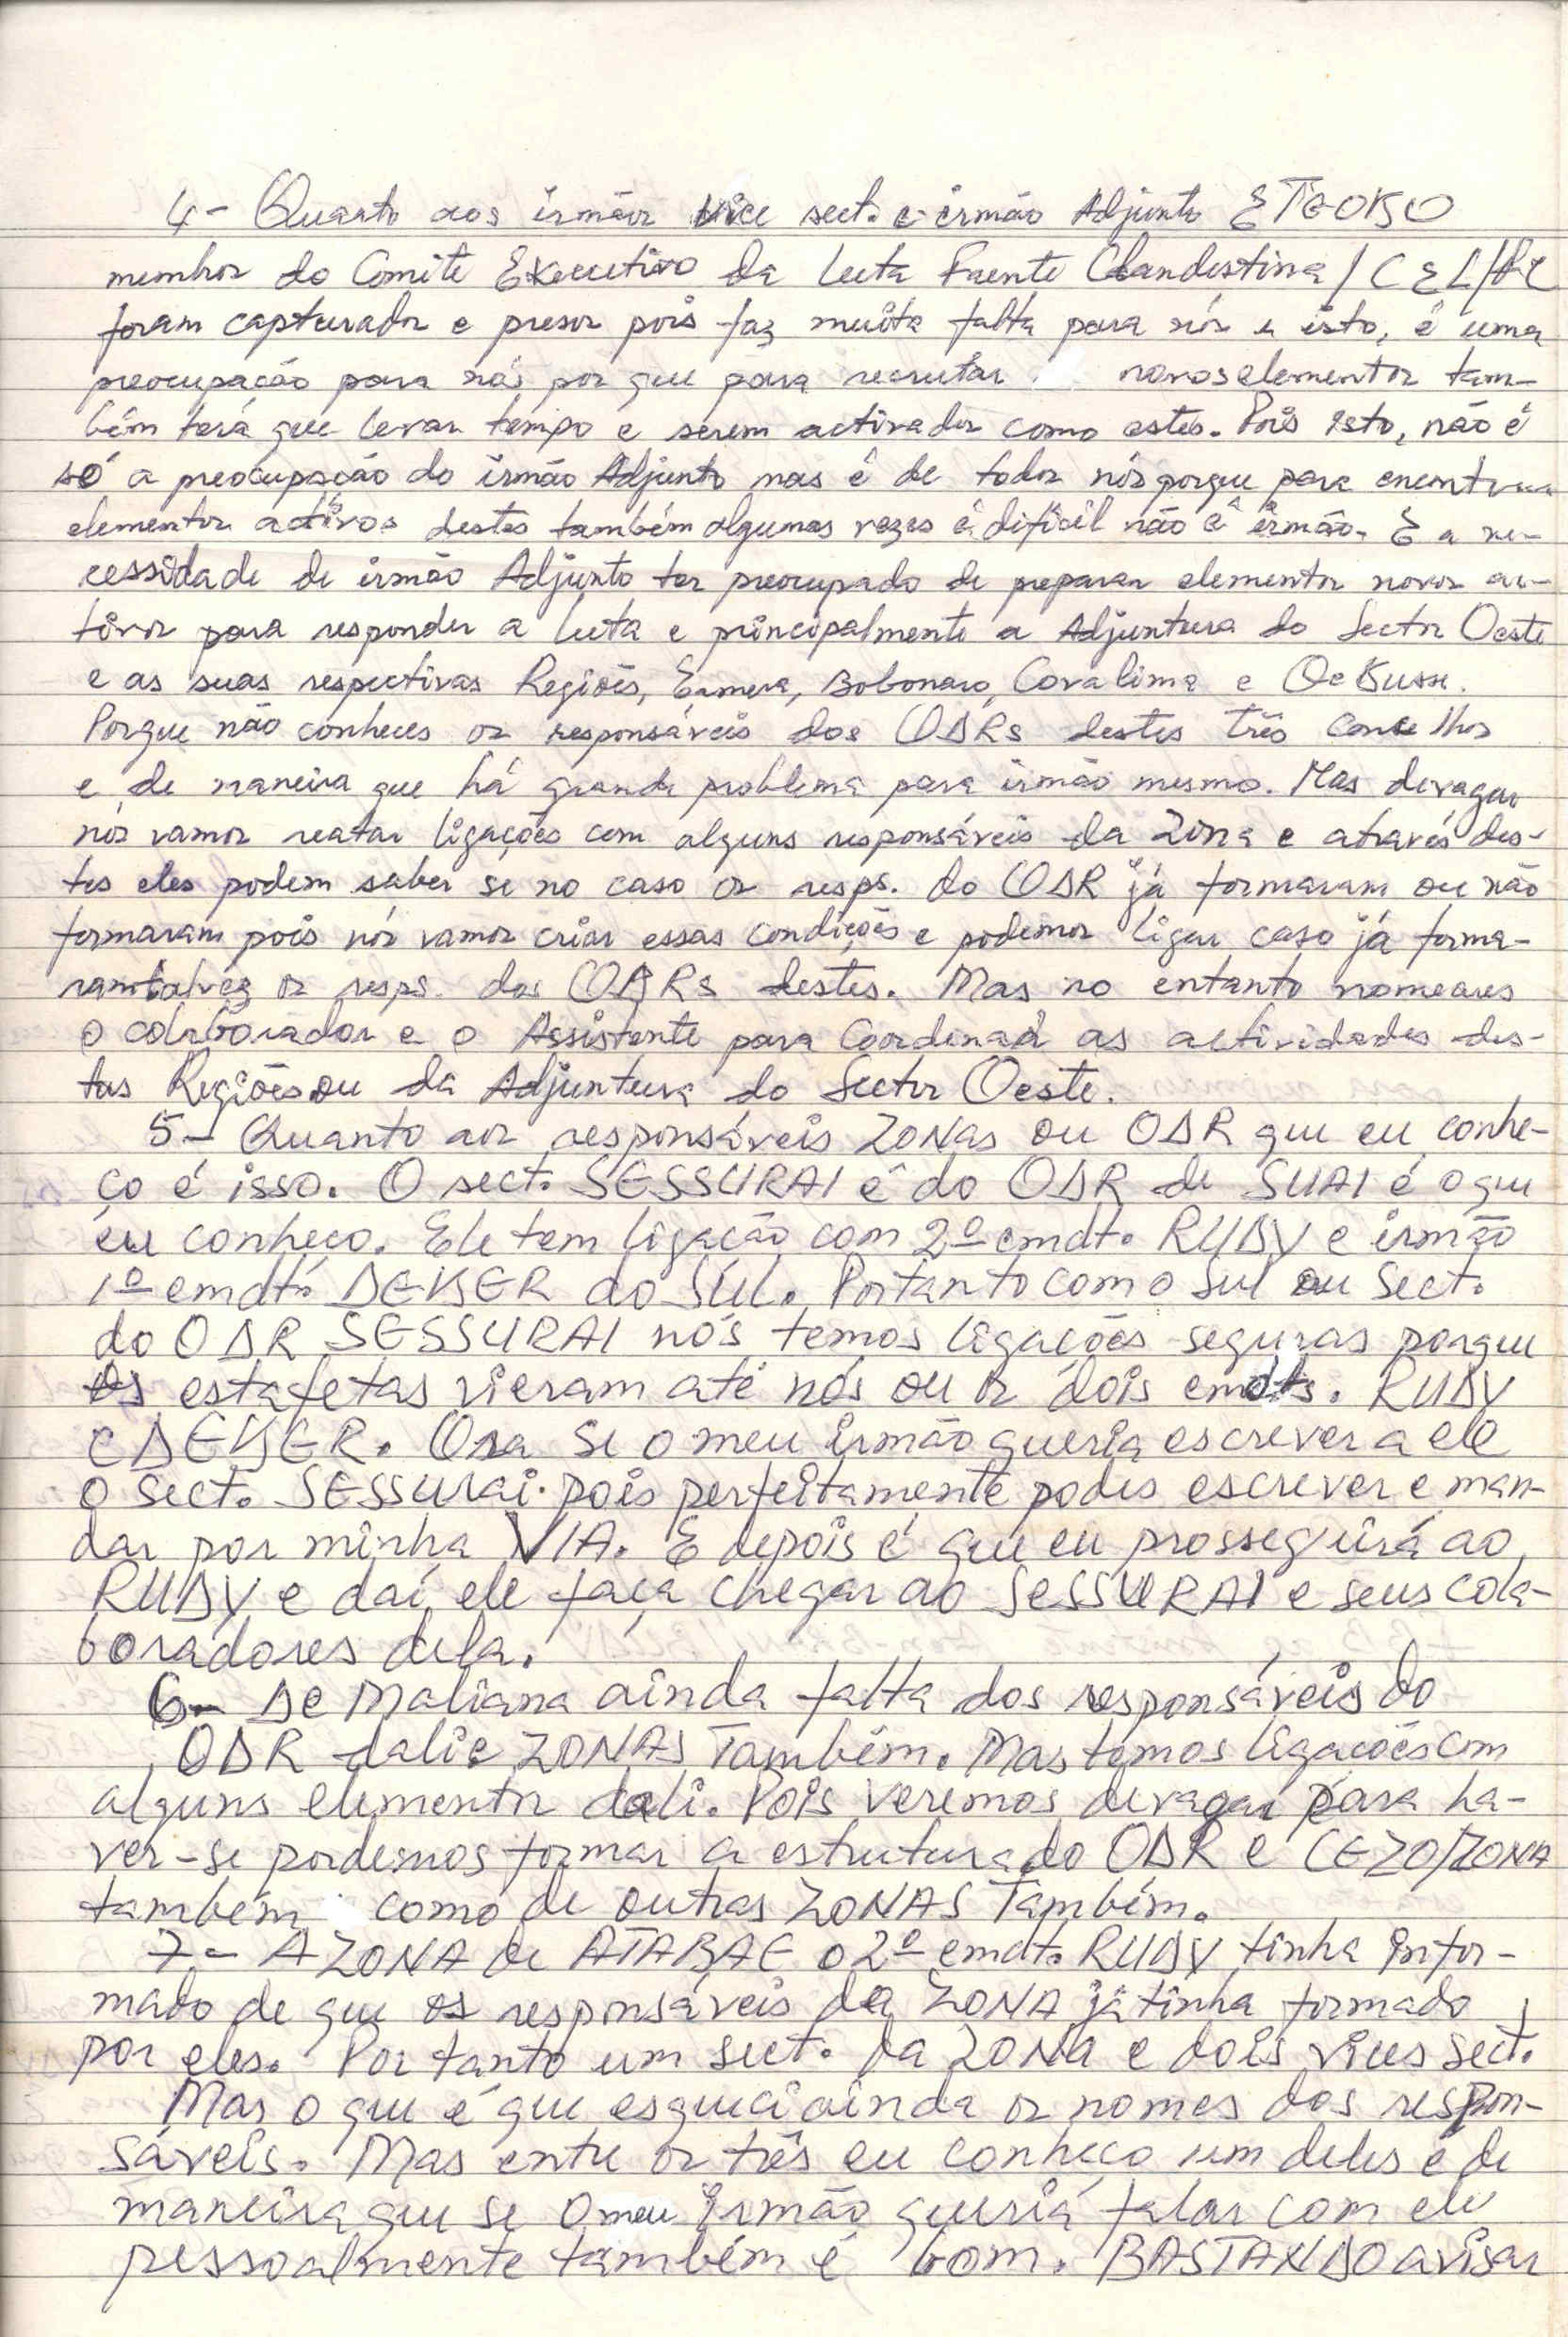 4- Quanto aos irmãos vice sect. e irmão Adjunto
membros do Comité Executivo da Luta Frente Clandestina/CEL/FC
foram capturados e presos pois faz muita falta para nós e isto, é uma
preocupação para nós por que para recrutar novos elementos tam-
bém terá que levar tempo e serem activados como estes. Pois isto, não é
só a preocupação do irmão Adjunto mas é de todos nós porque para encontrar
elementos activos destes também algumas vezes é dificil não é irmão. E a ne-
cessidade de irmão Adjunto ter preocupado de preparar elementos novos ac-
tivos para responder a luta e principalmente a Adjuntura do Sector Oeste
e as suas respectivas Regiões, Ermera, Bobonaro, Covalima e OeKusse.
Porque não conheces os responsáveis dos ODRs destes três concelhos
e de maneira que há grande problema para irmão mesmo. Mas devagar
nós vamos reatar ligações com alguns responsáveis da Zona e através des-
tes eles podem saber se no caso os resps. do ODR já formaram ou não
formaram pois nós vamos criar essas condições e podemos ligar caso já forma-
ram talvez os resps. dos ODRs destes. Mas no entanto nomeares
o colaborador e o Assistente para Coordenar as actividades des-
tas Regiões ou da Adjuntura do Sector Oeste.
5- Quanto aos responsáveis ZONAS ou ODR que eu conhe-
ço é isso. O sect. SESSURAI é do ODR de SUAI é o que
eu conheço. Ele tem ligação com 2º cmdt. RUDY e irmão
1º cmdt. DEKER do SUL. Portanto como o Sul ou Sect.
do ODR SESSURAI nós temos ligações seguras porque
os estafetas vieram até nós ou os dois cmdts. RUDY
e DEKER. Ora se o meu irmão queria escrever a ele
o Sect. SESSURAi. pois perfeitamente podes escrever e man-
dar por minha VIA. E depois é que eu prosseguirá ao
RUDY e daí ele faça chegar ao SESSURAI e seus cola-
boradores dela.
6- De Maliana ainda falta dos responsáveis do
ODR dali e ZONAS Também. Mas temos ligações com
alguns elementos dali. Pois veremos devagar para ha-
ver-se pordemos formar a estrutura do ODR e CEZO/ZONA
também como de outras ZONAS Também.
7- A ZONA de ATABAE o 2º cmdt. RUDY tinha infor-
mado de que os responsáveis da ZONA já tinha formado
por eles. Portanto um sect. da ZONA e dois vices sect.
Mas o que é que esqueci ainda os nomes dos respon-
sáveis. Mas entre os três eu conheço um deles e de
maneira que se o meu irmão queria falar com ele
pessoalmente também é bom. BASTANDO avisar